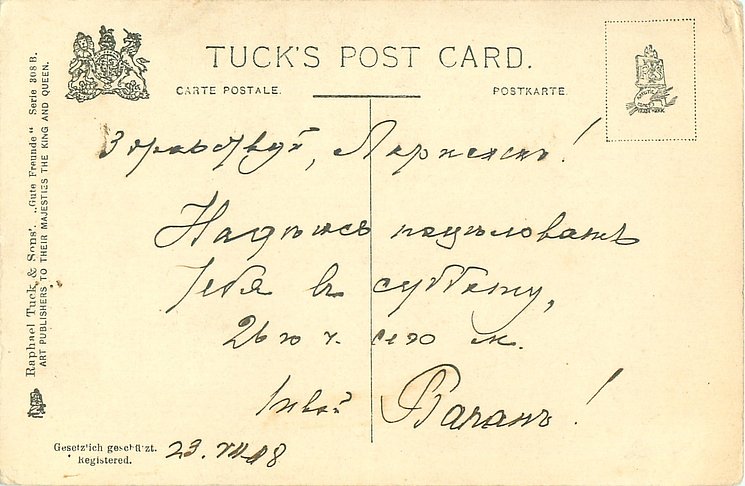 TUCK'S POST CARD.
CARTE POSTALE.
POSTKARTE.
Raphael Tuck & Sons'. „Gute Freunde" Serie 808 B.
ART PUBLISHERS TO THEIR MAJESTIES THE KING AND QUEEN.
Здравствуй,
Надѣюсь поцѣловать
Тебя въ субботу,
26 го ч. сего м.
Твой
Gesetzlich geschützt.
Registered.